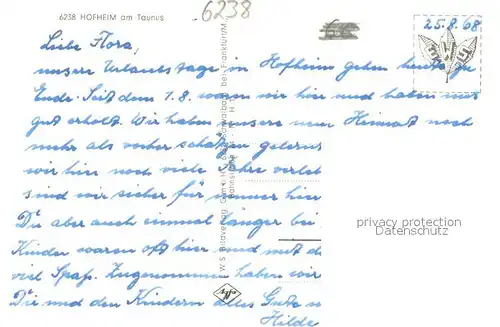 6238 HOFHEIM am Taunus
6238
25.8.68
Liebe Flora,
unsere Urlaubstage in Hofheim gehen heute zu
Ende. Seit dem 1.8. waren wir hier und haben uns
gut erholt. Wir haben unsere neue Heimat noch
mehr als vorher schätzen gelernt
wir hier noch viele Jahre verleb
sind wir sicher für immer hier
Du aber auch einmal länger bei
Kinder waren oft hier und mit d
viel Spaß. Zugenommen haben wir
Dir und den Kindern alles Gute
Hilde
privacy protection
Datenschutz